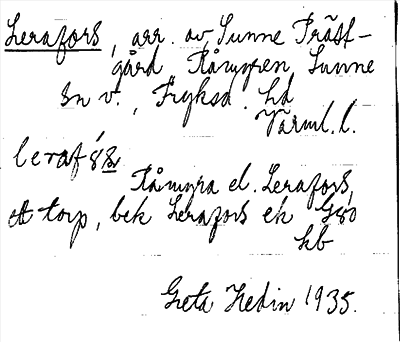 Lerafors, arr. av Sunne Präst-
gård Råmyren, Sunne
sn v., Fryksd. hd
Värml. l.
Råmyra el. Lerafors,
torp, bek Lerafors ek
hb
Greta Hedin 1935.